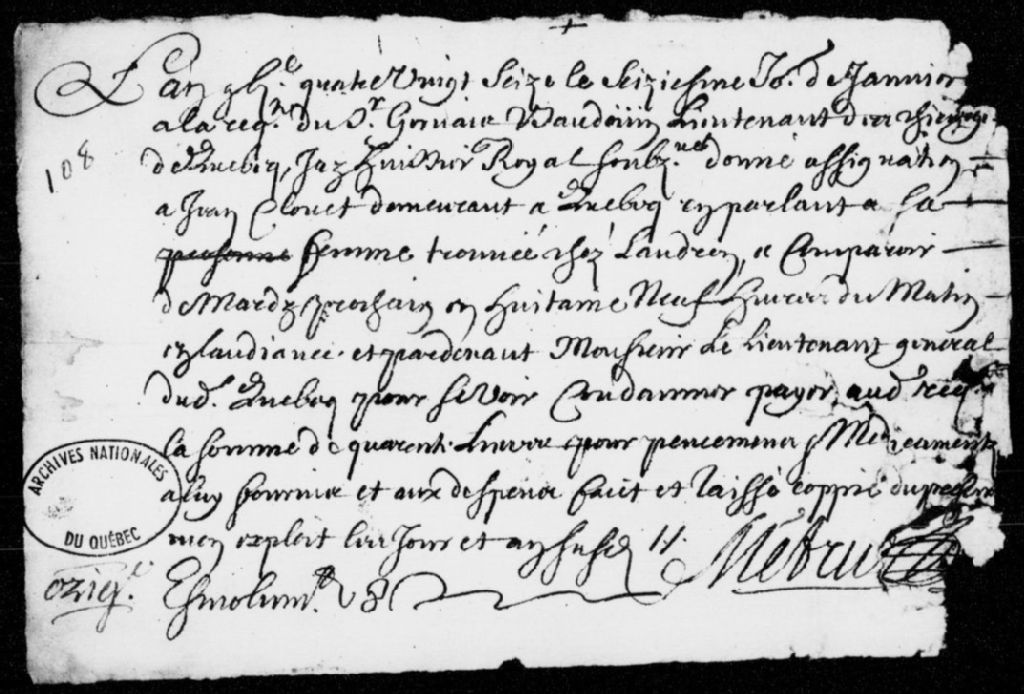 L'an gbj^c quatre Vingt Seize le Seiziesme Jo.^r de Janvier
a la req.^te du S.^r Gervaix Baudoüin Lieutenant des chirurgi
de Quebecq, Jay huissier Royal soubz.^né donné assignation
108
a Jean Clouet demeurant a Quebecq en parlant a sa
personne femme trouvée chez Landron, a Comparoir
de Mardy prochain en huitaine Neuf heures du Matin
en laudiance et pardevant Monsieur Le Lieutenant general
dud. Quebecq pour se voir Condamner payer aud. req.
la somme de quarente Livres pour pencements & Medicaments
a luy fournis et aux despens faict et laissé coppie du presen
mon exploit les Jour et an susd
Metru
orig.^l
Esmolum.^t
ARCHIVES NATIONALES
DU QUÉBEC